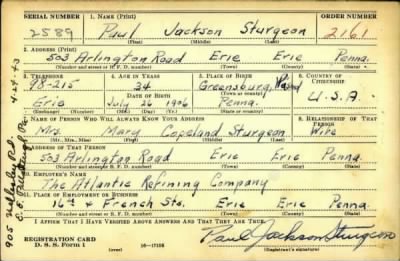 SERIAL NUMBER 1. NAME (Print) ORDER NUMBER
2589 Paul Jackson Sturgeon 2161
(First) (Middle) (Last)
2. ADDRESS (Print)
503 Arlington Road Erie Erie Penna.
(Number and street or R. F. D. number) (Town) (County) (State)
3. TELEPHONE 4. AGE IN YEARS 5. PLACE OF BIRTH 6. COUNTRY OF CITIZENSHIP
98-215 34 Greensburg,
DATE OF BIRTH (Town or county)
Erie July 26 1906 Penna. U.S.A.
(Exchange) (Mo.) (Day) (Yr.) (State or country)
7. NAME OF PERSON WHO WILL ALWAYS KNOW YOUR ADDRESS 8. RELATIONSHIP OF THAT PERSON
Mrs. Mary Copeland Sturgeon Wife
(Mr., Mrs., Miss) (First) (Middle) (Last)
9. ADDRESS OF THAT PERSON
503 Arlington Road Erie Erie Penna
(Number and street or R. F. D. number) (Town) (County) (State)
10. EMPLOYER'S NAME
The Atlantic Refining Company
11. PLACE OF EMPLOYMENT OR BUSINESS
16th & French Sts. Erie Erie Penna.
(Number and street or R. F. D. number) (Town) (County) (State)
I AFFIRM THAT I HAVE VERIFIED ABOVE ANSWERS AND THAT THEY ARE TRUE.
REGISTRATION CARD
D. S. S. FORM 1 (over) 16-17105 Paul Jackson Sturgeon
(Registrant's signature)
905
4-24-43